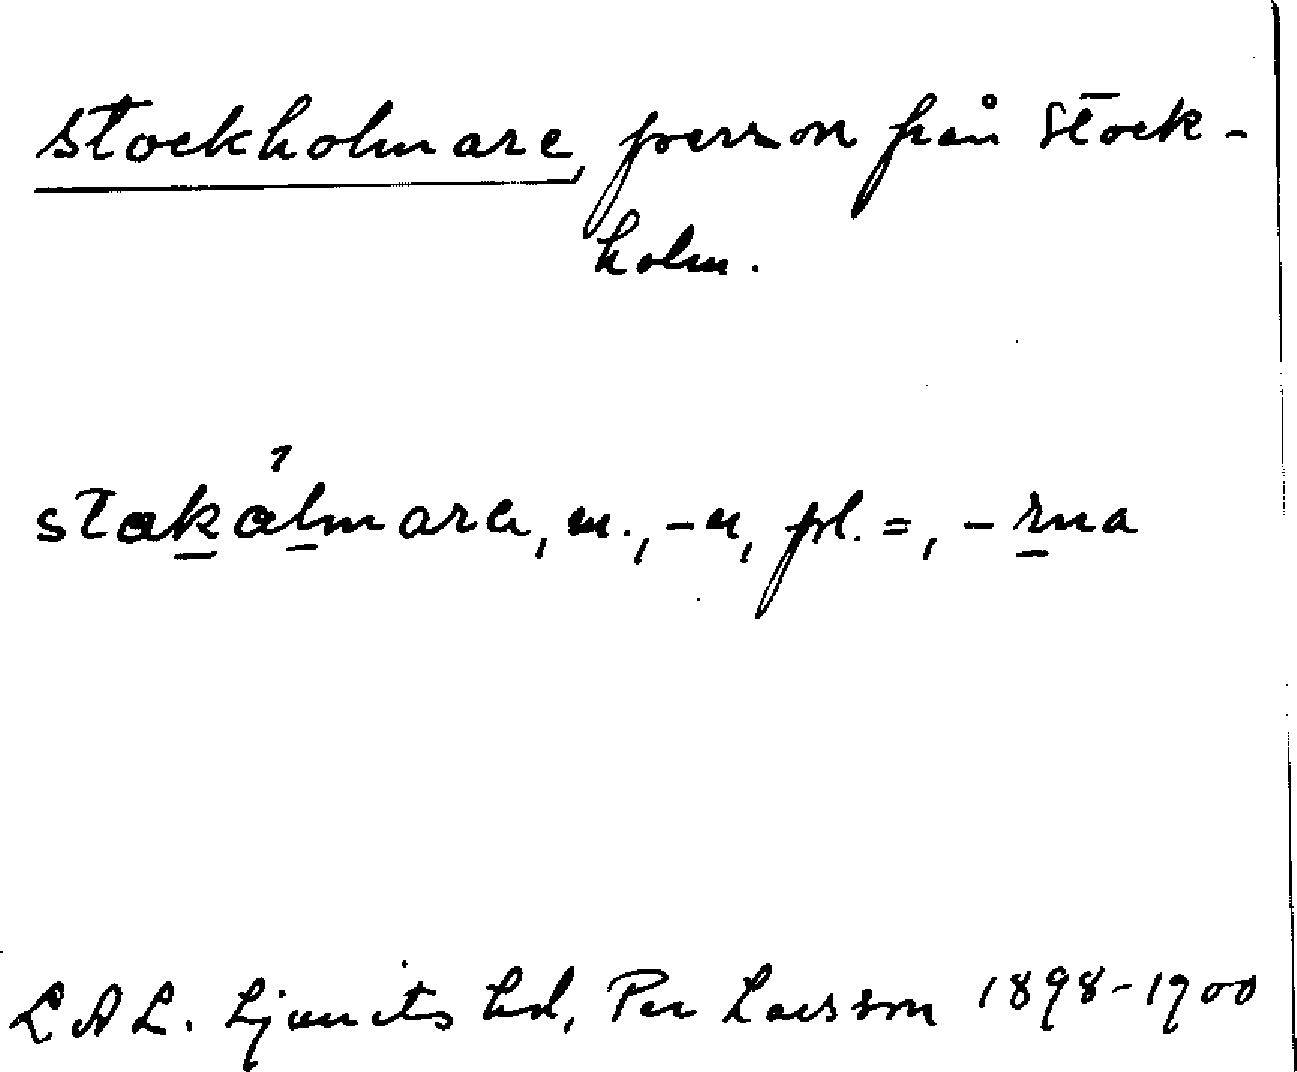 stockholmare, person från Stock-
holm.
stakálmara, m., -n, pl. =, -rna
LAL. Ljunits hd, Per Larsson 1898-1900